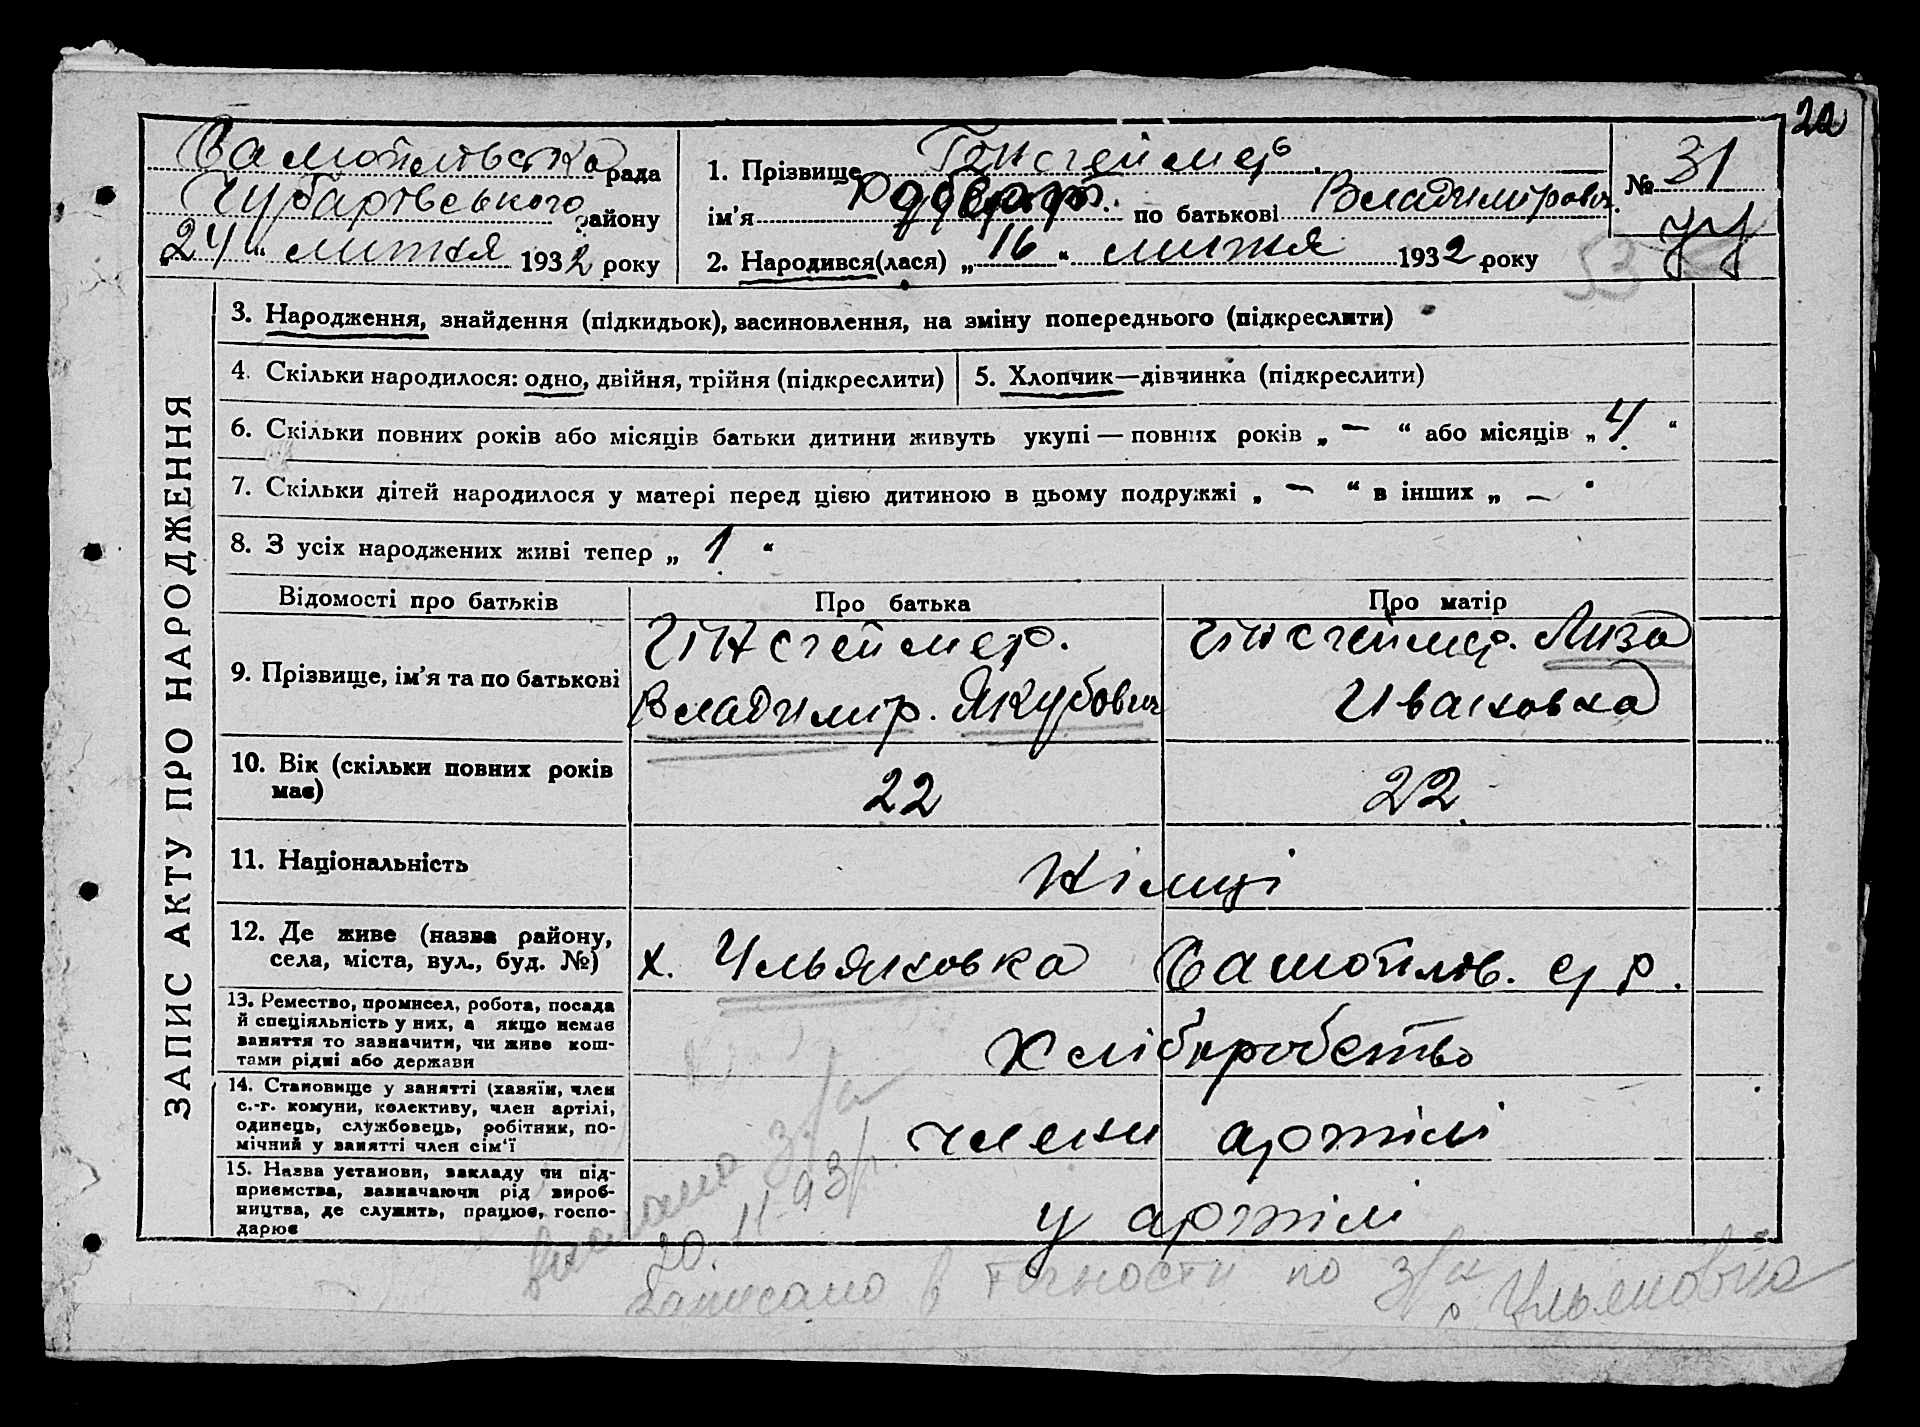 22
Самойлівська рада
Чубарівського району
„24“ липня 1932 року
1. Прізвище Гінсгеймер.
ім'я по батькові Владимирович.
2. Народився(лася) „16“ липня 1932 року
№ 31
53
ЗАПИС АКТУ ПРО НАРОДЖЕННЯ
3. Народження, знайдення (підкидьок), засиновлення, на зміну попереднього (підкреслити)
4. Скільки народилося: одно, двійня, трійня (підкреслити)
5. Хлопчик—дівчинка (підкреслити)
6. Скільки повних років або місяців батьки дитини живуть укупі — повних років „ — “ або місяців „ 4 “
7. Скільки дітей народилося у матері перед цією дитиною в цьому подружжі „ — “ в інших „ — “
8. З усіх народжених живі тепер „ 1 “
Відомості про батьків
Про батька
Про матір
9. Прізвище, ім'я та по батькові
Гінсгеймер.
Владимир. Якубович
Гінсгеймер. Лиза
Ивановна
10. Вік (скільки повних років
має)
22
22
11. Національність
Німці
12. Де живе (назва району,
села, міста, вул., буд. №)
х. Ульяновка Самойлів. с/р.
13. Ремество, промисел, робота, посада
й спеціяльність у них, а якщо немає
заняття то зазначити, чи живе кош-
тами рідні або держави
Хліборобство
14. Становище у занятті (хазяїн, член
с.-г. комуни, колективу, член артілі,
одинець, службовець, робітник, по-
мічний у занятті член сім'ї
члени артілі
15. Назва установи, закладу чи під-
приємства, зазначаючи рід вироб-
ництва, де служить, працює, госпо-
дарює
у артілі
з/а
20.11.93г.
Записано в точности по з/а
Ульяновка